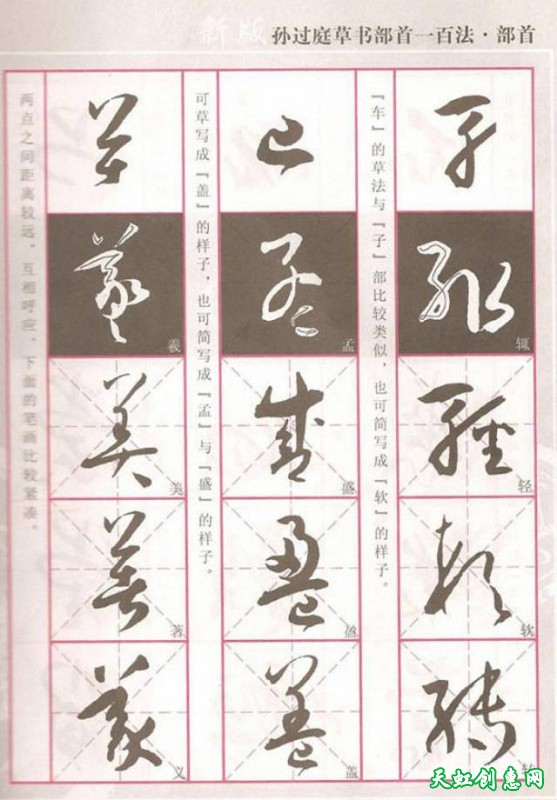 新版 孙过庭草书部首一百法·部首
『车』的草法与『子』部比较类似，也可简写成『软』的样子。
辄
轻
软
转
可草写成『盖』的样子，也可简写成『孟』与『盛』的样子。
孟
盛
盈
盖
两点之间距离较远，互相呼应，下面的笔画比较紧凑。
羲
美
著
义
天虹创意网